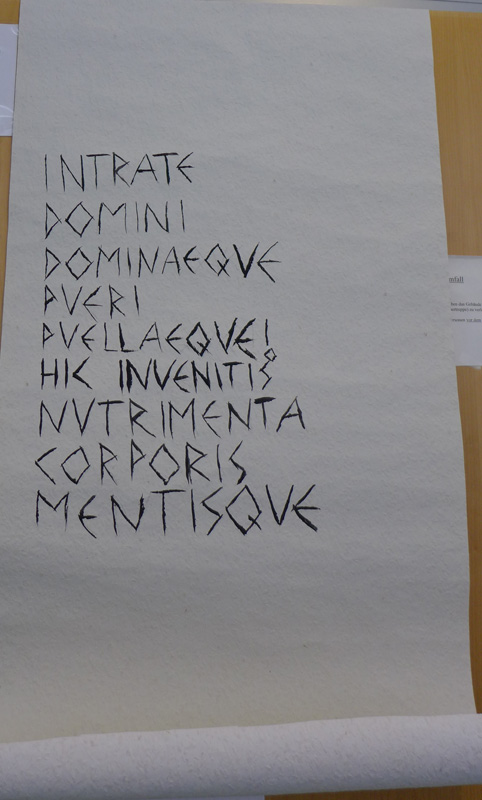 INTRATE
DOMINI
DOMINAEQVE
PVERI
PVELLAEQVE!
HIC INVENITIS
NVTRIMENTA
CORPORIS
MENTISQVE